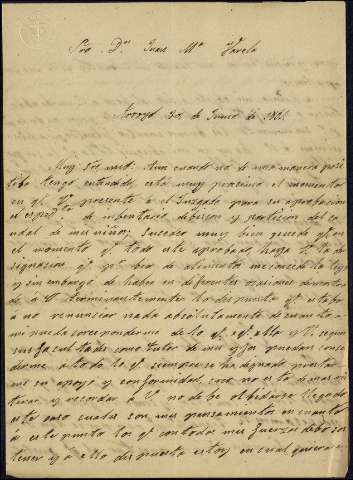 Sor Dn Juan Ma Varela
de Junio de
Muy Sor mio: Aun cuando no de una manera posi
tiba tengo entendido, está muy proximo el momento
en qe Vd presente á el Juzgado para su aprobacion
el espedte de inbentario, dibision y particion del cau
dal de mis niños; Sucederá muy bien puede qe en
el momento qe todo esté aprobado, haga Vd la de
signacion qe pr bia de alimentos me concede la ley
y sin embargo de haber en diferentes ocasiones demostra
do á Vd terminantemente lo dispuesta qe estaba
á no renunciar nada absolutamente de cuanto á
mi pueda corresponderme de lo qe
sus facultades como tutor de mis hijos puedan conce
derme, á todo lo qe siempre se ha dignado prestar
me su apoyo y conformidad, creo no está demas rei
terar y recordar á Vd no debe olbidarse llegado
este caso cuales son mis pensamientos en cuanto
á este punto los qe con todas mis fuerzas debo sos
tener y á ello dispuesta estoy en cualquiera